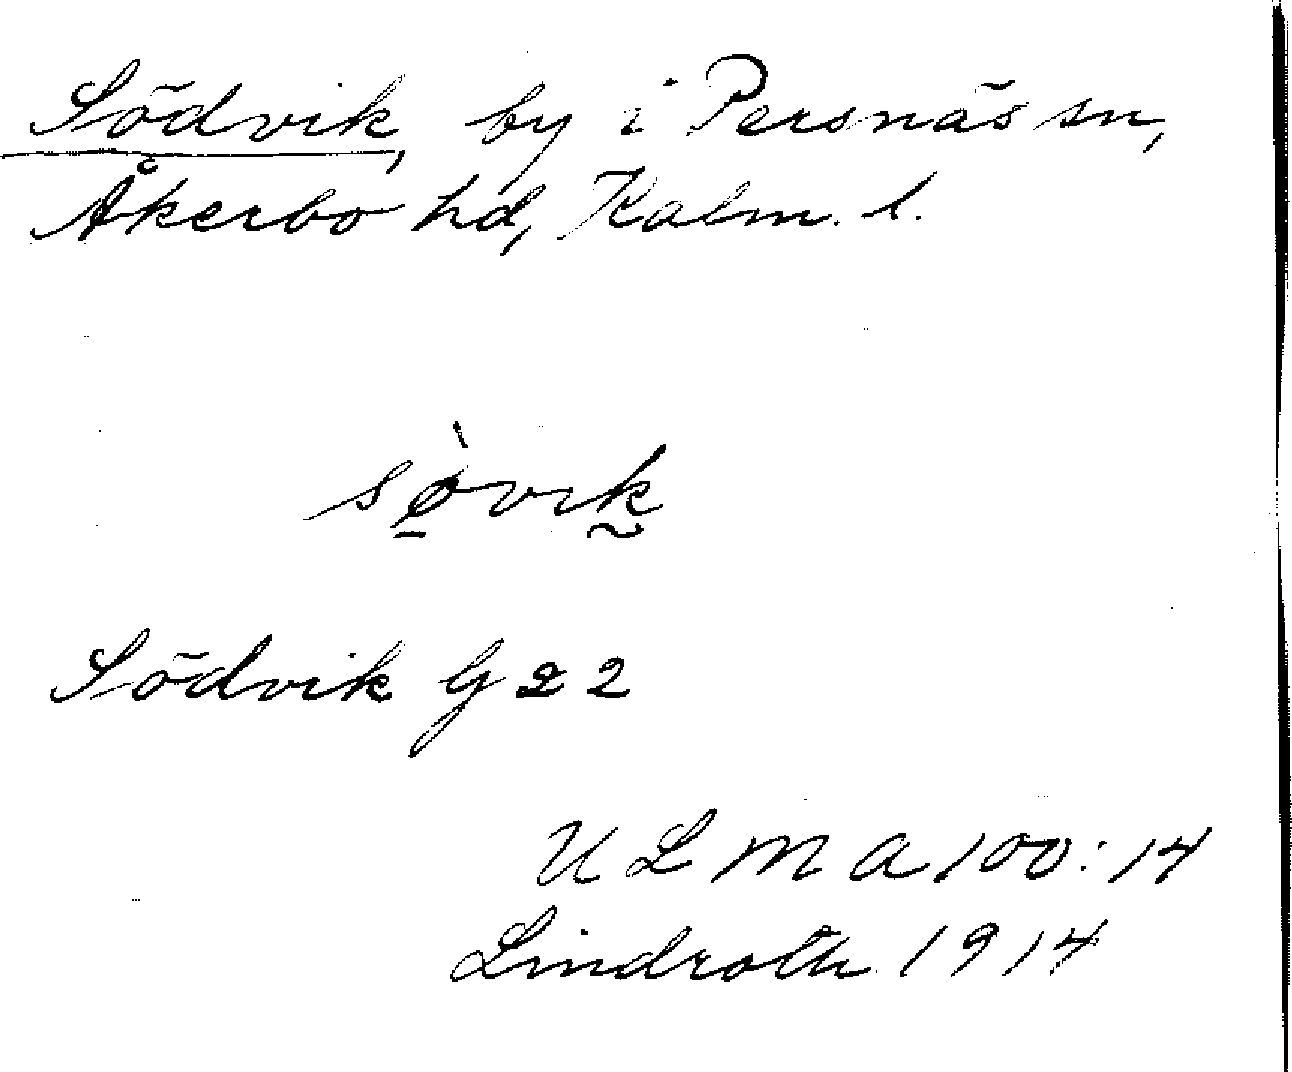 Södvik, by i Persnäs sn,
Åkerbo hd, Kalm. l.
sø̠̀vik̰
Södvik G 22
ULMA 100:14
Lindroth 1914